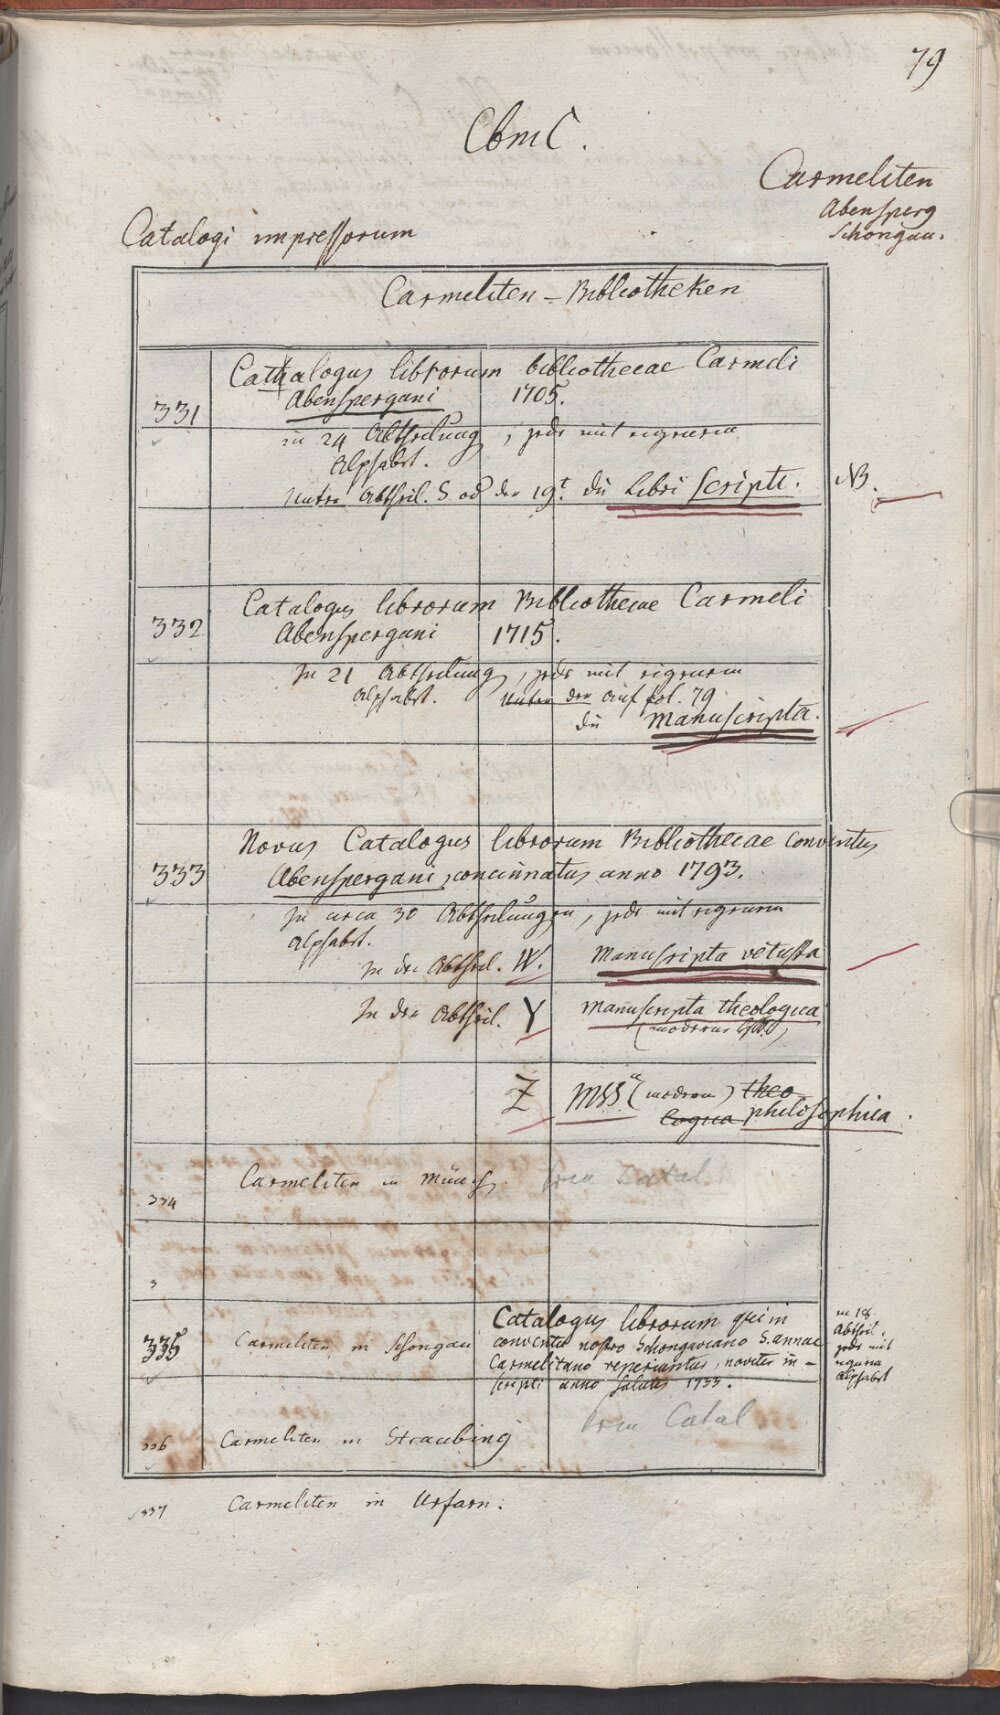 79
CbmC.
Carmeliten
Abensperg
Schongau.
Catalogi impressorum
Carmeliten - Bibliotheken
331
Cathalogus librorum bibliothecae Carmeli
Abenspergani 1705.
in 24 Abtheilung, jede mit eigenem
Alphabet.
Unter Abtheil. S. od der 19t. die Libri scripti. NB.
332
Catalogus librorum Bibliothecae Carmeli
Abenspergani 1715.
In 21 Abtheilung, jede mit eigenem
Alphabet. Unter den auf fol. 79
die Manuscripta.
333
Novus Catalogus librorum Bibliothecae conventus
Abenspergani, concinnatus anno 1793.
In circa 30 Abtheilungen, jede mit eigenem
Alphabet.
In der Abtheil. W. Manuscripta vetusta
In der Abtheil. Y Manuscripta theologica
(moderna
Z Mss (modern) theo
logica philosophica.
334
Carmeliten in Münch Catal
3
335
Carmeliten in Schongau
Catalogus librorum qui in
conventu nostro Schongaviano S. annae
Carmelitano reperiuntur, noviter in-
scripti anno salutis 1733.
in 18.
Abtheil.
jede mit
eigenem
Alphabet
336
Carmeliten in Straubing Catal
337 Carmeliten in Urfarn.